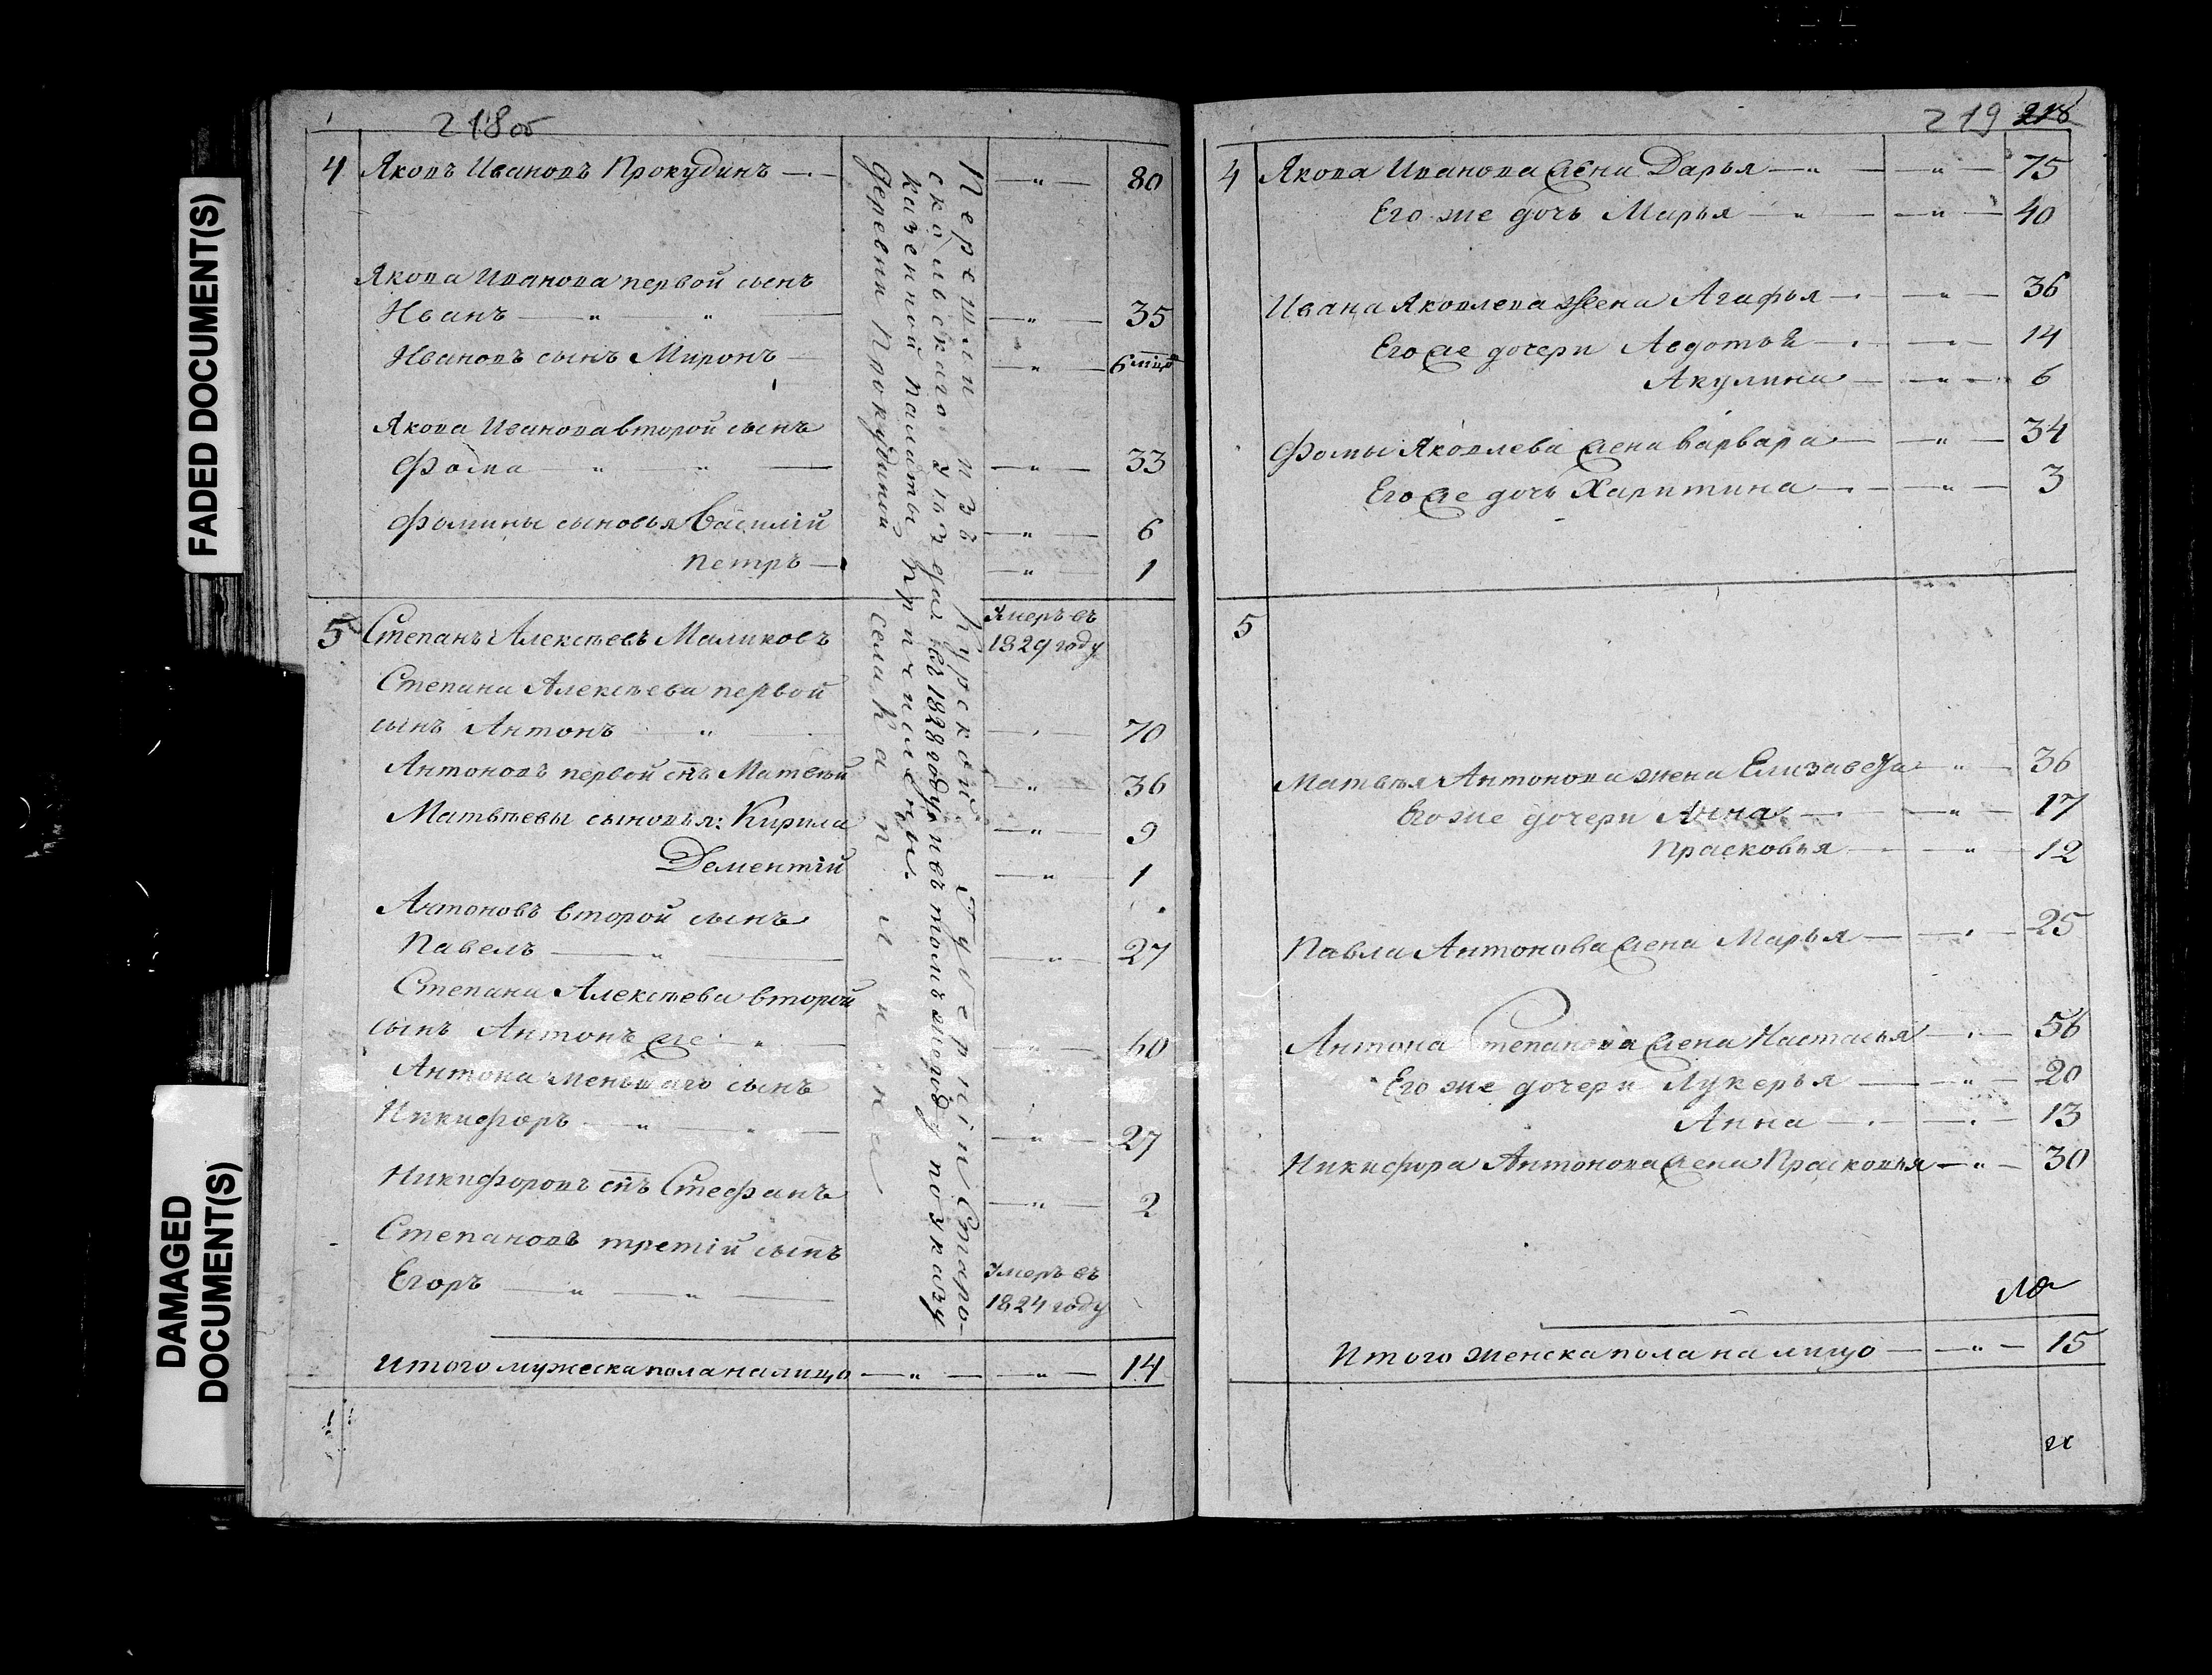 FADED DOCUMENT(S)
DAMAGED
DOCUMENT(S)
218об
4 Яковъ Ивановъ Прокудинъ — " — 80
Якова Иванова первой сынъ
Иванъ — " — " — — " — 35
Ивановъ сынъ Миронъ — — " — 6 мцо
Якова Иванова второй сынъ
Фома — " — " — — " — 33
Фомины сыновья Василій — " — 6
Петръ — — " — 1
5 Степанъ Алексѣевъ Маликовъ Умеръ въ
1829 году
Степана Алексѣева первой
сынъ Антонъ — " — — " — 70
Антоновъ первой с҃нъ Матвѣй — " — 36
Матвѣевы сыновья: Кирила — " — 9
Дементій — " — 1
Антоновъ второй сынъ
Павелъ — " — — " — 27
Степана Алексѣева второй
сынъ Антонъ же — " — — " — 60
Антона меньшаго сынъ
Никифоръ — " — " — — " — 27
Никифоровъ с҃нъ Стефанъ — " — 2
Степановъ третій сынъ
Егоръ — " — " — Умеръ въ
1824 году
Итого мужеска пола на лицо — " — — " — 14
Перешли изъ Курской Губерніи Старо-
скольскаго уѣзда въ 1828 году и въ томъ же году по указу
казенной палаты причислены.
деревни Прокудиной села
219 218
4 Якова Иванова жена Дарья — " — — " — 75
Его же дочь Марья — " — — " — 40
Ивана Яковлева жена Агафья — " — 36
Его же дочери Авдотья — " — 14
Акулина — " — 6
Фомы Яковлева жена Варвара — " — 34
Его же дочь Харитина — " — 3
5
Матвѣя Антонова жена Елизавета — " — 36
Его же дочери Анна — " — 17
Прасковья — " — 12
Павла Антонова жена Марья — " — 25
Антона Степанова жена Настасья — " — 56
Его же дочери Лукерья — " — 20
Анна — " — 13
Никифора Антонова жена Прасковья — " — 30
Итого женска пола на лицо — " — 15